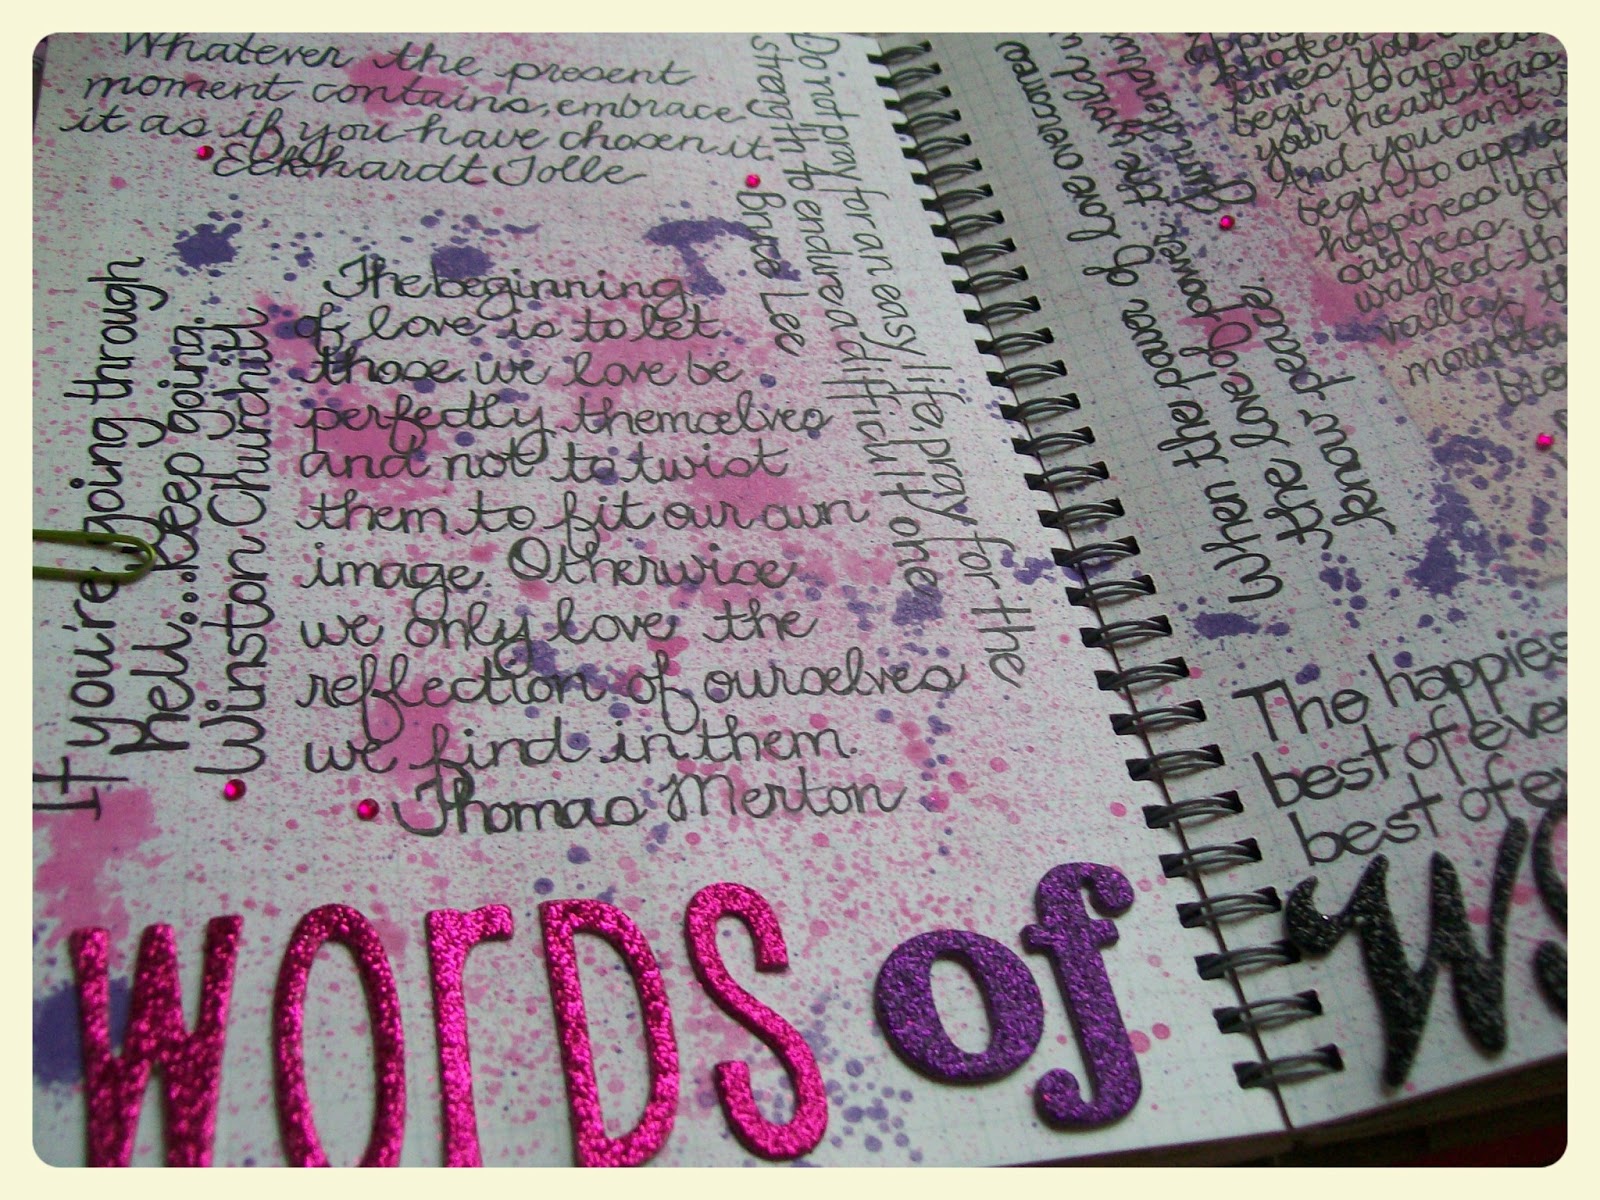 Whatever the present
moment contains, embrace
it as if you have chosen it.
Eckhardt Tolle
Do not pray for an easy life, pray for the
strength to endure a difficult one
Bruce Lee
If you're going through
hell...keep going.
Winston Churchill
The beginning
of love is to let
those we love be
perfectly themselves
and not to twist
them to fit our own
image. Otherwise
we only love the
reflection of ourselves
we find in them.
Thomas Merton
words of
When the power of love overcomes
the love of power, the world
know peace.
times you
begin to apprec
your heart has
And you can't
begin to appre
happiness unt
sadness.
walked th
valley, th
mounta
The happies
best of ever
best of ev
w